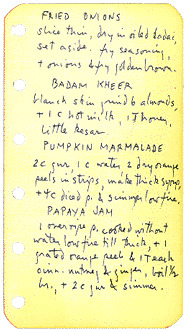 FRIED ONIONS
slice thin, dry in oiled kadai,
set aside. fry seasoning,
+ onions & fry golden brown.
BADAM KHEER
blanch skin grind 6 almonds
+ 1 c hot milk, 1 T honey,
little kesar
PUMPKIN MARMALADE
2 c gur, 1 c water 2 day orange
peels in strips, make thick syrup,
+ 4 c diced p. & simmer low fire,
PAPAYA JAM
1 over ripe p. cooked without
water low fire till thick, + 1
grated orange peel & 1 t each
cinn. nutmeg & ginger, boil ½
hr., + 2 c gur & simmer.